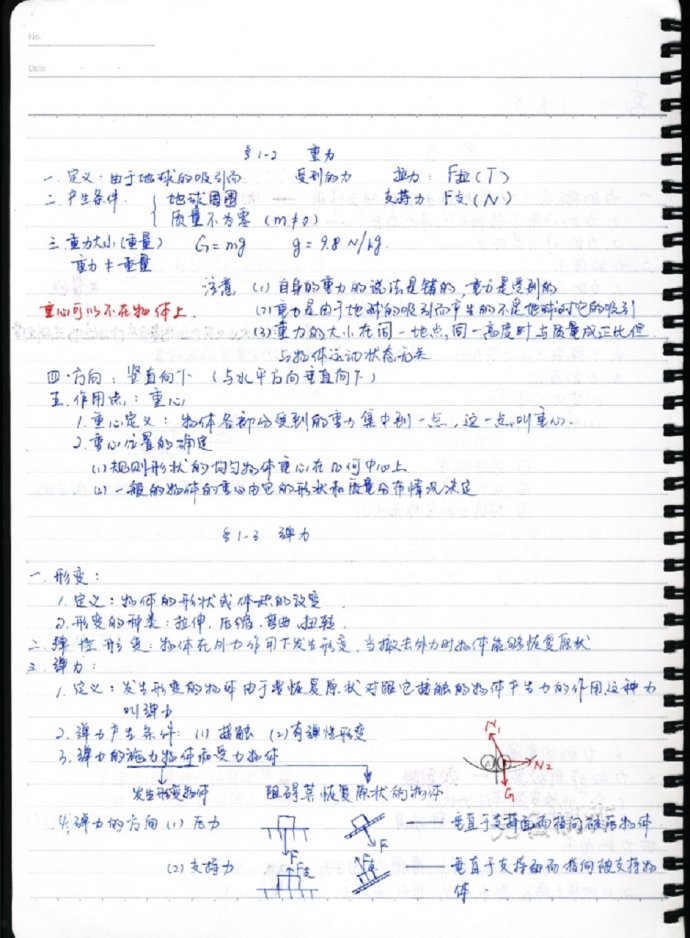 No.
Date
§1-2 重力
一. 定义：由于地球的吸引而 受到的力 拉力：F拉(T)
二. 产生条件. { 地球周围 支持力 F支(N)
质量不为零 (m≠0)
三. 重力大小(重量) G=mg g=9.8 N/kg.
重力≠重量
注意 (1) 自身的重力的说法是错的，重力是受到的
重心可以不在物体上.
(2) 重力是由于地球的吸引而产生的不是地球对它的吸引
(3) 重力的大小在同一地点，同一高度时与质量成正比但
与物体运动状态无关
四. 方向：竖直向下 (与水平方向垂直向下)
五. 作用点：重心
1. 重心定义：物体各部分受到的重力集中到一点，这一点叫重心.
2. 重心位置的确定
(1) 规则形状的均匀物体重心在几何中心上
(2) 一般的物体的重心由它的形状和质量分布情况决定
§1-3 弹力
一. 形变：
1. 定义：物体的形状或体积的改变.
2. 形变的种类：拉伸、压缩、弯曲、扭转.
二. 弹性形变：物体在外力作用下发生形变，当撤去外力时物体能够恢复原状
三. 弹力：
1. 定义：发生形变的物体由于要恢复原状对跟它接触的物体产生力的作用，这种力
叫弹力
2. 弹力产生条件：(1) 接触 (2) 有弹性形变
3. 弹力的施力物体和受力物体
N1
N2
G
发生形变物体 阻碍其恢复原状的物体
4. 弹力的方向 (1) 压力 F F 垂直于支持面而指向被压物体
(2) 支持力 F支 F支 垂直于支持面而指向被支持物
体